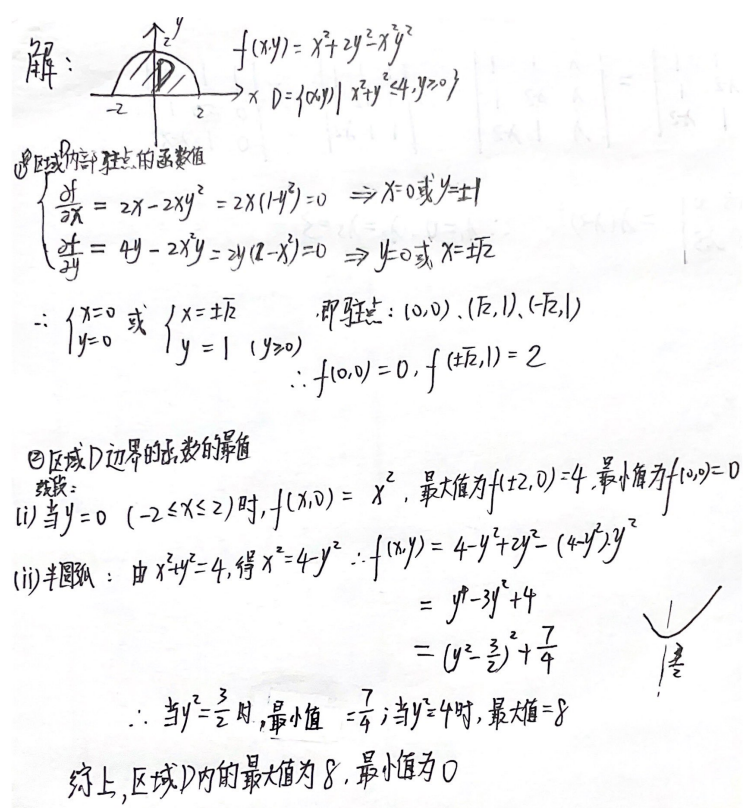 解:
y
2
D
-2
2
x
f(x,y) = x²+2y²-x²y²
D={(x,y)| x²+y²≤4,y≥0}
①区域D内部驻点的函数值
{ ∂f/∂x = 2x-2xy² = 2x(1-y²)=0 ⇒ x=0或y=±1
∂f/∂y = 4y-2x²y=2y(2-x²)=0 ⇒ y=0或 x=±√2
∴ { x=0 y=0 或 { x=±√2 y=1 (y≥0) 即驻点: (0,0)、(√2,1)、(-√2,1)
∴ f(0,0)=0, f(±√2,1)=2
②区域D边界的函数的最值
线段:
(i)当y=0 (-2≤x≤2)时,f(x,0)= x², 最大值为f(±2,0)=4,最小值为f(0,0)=0
(ii)半圆弧: 由x²+y²=4,得x²=4-y² ∴f(x,y)= 4-y²+2y²-(4-y²)y²
= y⁴-3y²+4
= (y²-3/2)²+7/4
3/2
∴ 当y²=3/2时,最小值 =7/4;当y²=4时,最大值=8
综上,区域D内的最大值为8,最小值为0